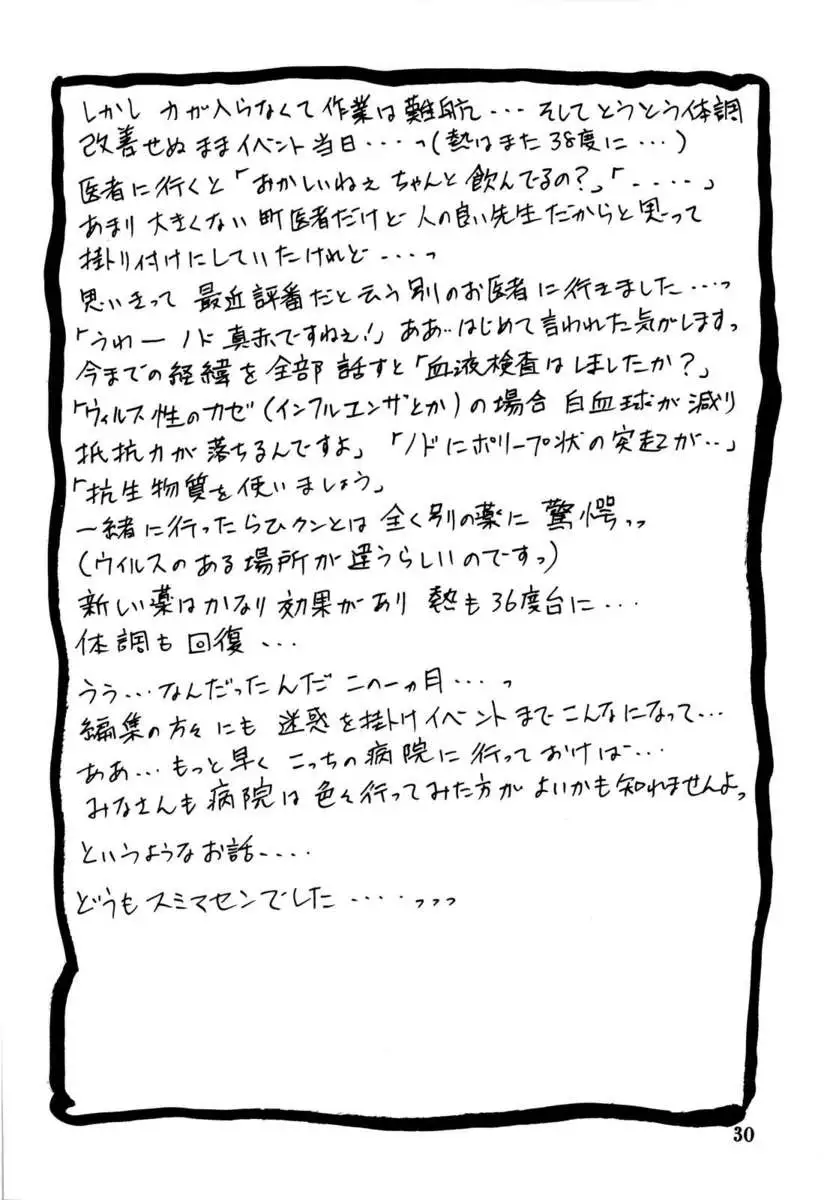 しかし 力が入らなくて作業は難航･･･ そしてとうとう体調
改善せぬままイベント当日･･･っ(熱はまた38度に･･･)
医者に行くと「おかしいねぇ ちゃんと飲んでるの?」「････」
あまり大きくない町医者だけど 人の良い先生だからと思って
掛トリ付けにしていたけれど･･･っ
思いきって 最近評番だと云う別のお医者に行きました･･･っ
「うわー ノド真赤ですねぇ!」ああ‥はじめて言われた気がしますっ
今までの経緯を全部話すと「血液検査はしましたか?」
「ウィルス性のカゼ(インフルエンザとか)の場合 白血球が減り
抵抗力が落ちるんですよ」「ノドにポリープ状の突起が‥」
「抗生物質を使いましょう」
一緒に行ったらひクンとは 全く別の薬に 驚愕っっ
(ウイルスのある場所が違うらしいのですっ)
新しい薬はかなり効果があり 熱も36度台に･･･
体調も回復･･･
うう･･･なんだったんだ この一ヵ月･･･っ
編集の方々にも 迷惑を掛けイベントまでこんなになって･･･
ああ･･･もっと早く こっちの病院に行っておけば･･･
みなさんも病院は色々行ってみた方がよいかも知れませんよっ
というようなお話････
どうもスミマセンでした････っっっ
30